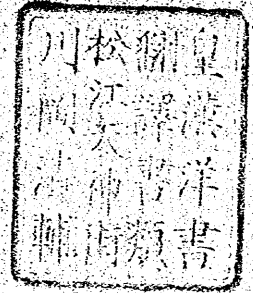 皇漢洋書
飜譯書類
松江天神町
川岡清助